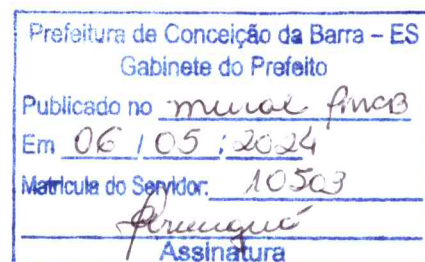 Prefeitura de Conceição da Barra – ES
Gabinete do Prefeito
Publicado no mural PMCB
Em 06 / 05 / 2024
Matricula do Servidor: 10503
Assinatura